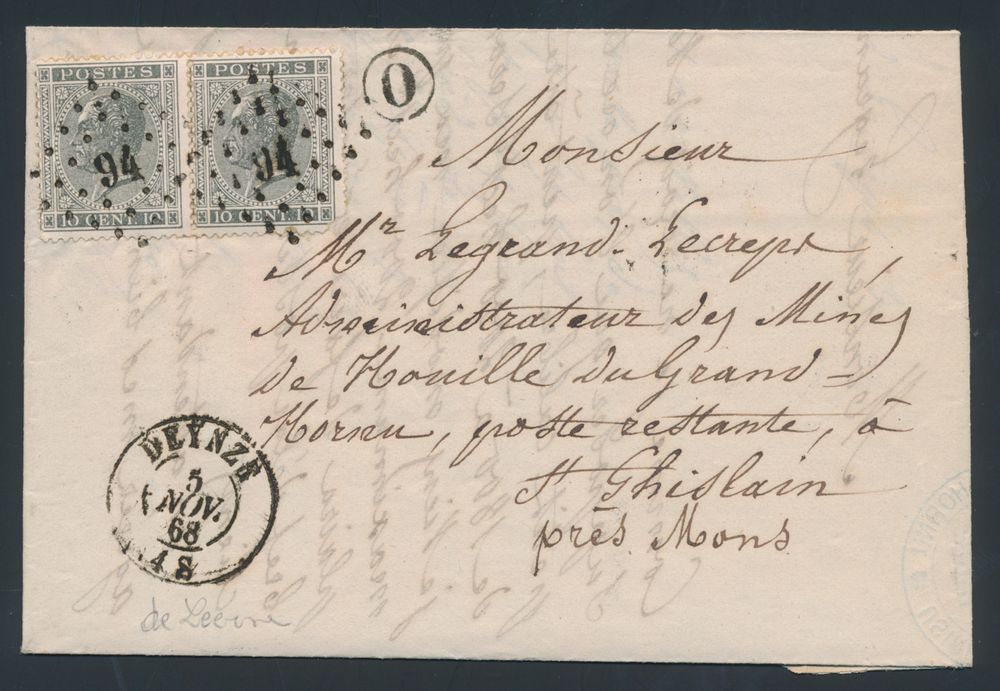 POSTES POSTES
94 94
10 CENT. 10 10 CENT. 10
O
Monsieur
Mr Legrand-Lecreps
Administrateur des Mines
de Houille du Grand-
Hornu, poste restante, à
St Ghislain
près Mons
DEYNZE
5
NOV.
68
4 S